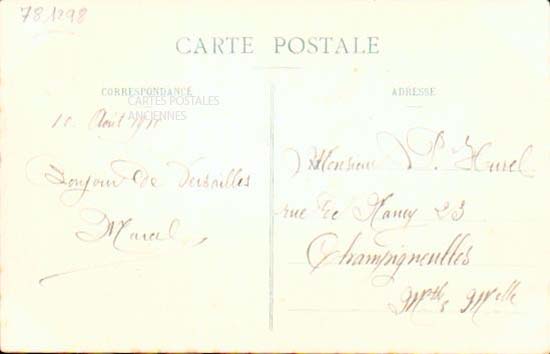 781298
CARTE POSTALE
CORRESPONDANCE
CARTES POSTALES
ANCIENNES
10 Août 1911
Bonjour de Versailles
Marcel
ADRESSE
Monsieur P. Hurel
rue de Nancy 23
Champigneulles
Mthe Mselle